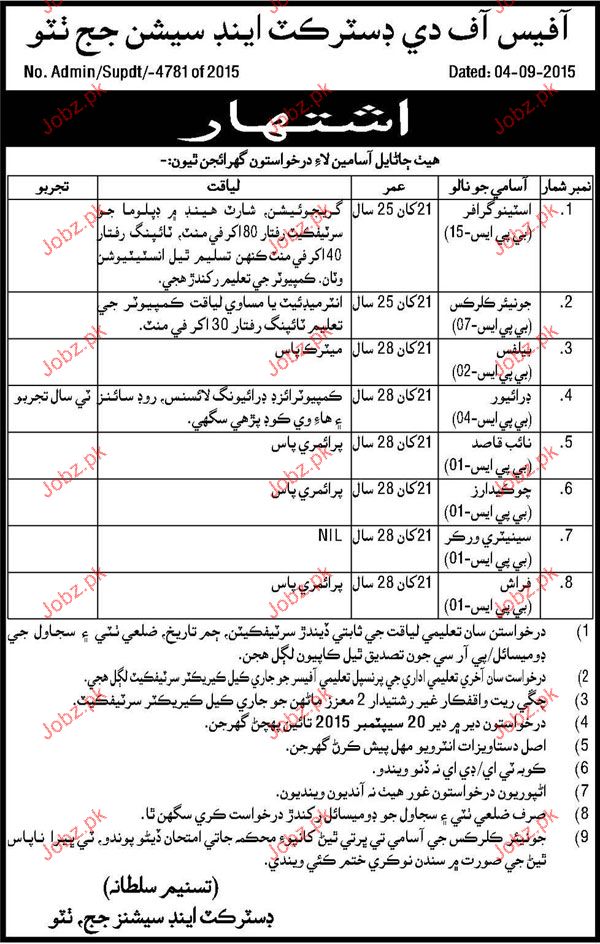 آفيس آف دي ڊسٽرڪٽ اينڊ سيشن جج ٺٽو
No. Admin/Supdt/-4781 of 2015
Dated: 04-09-2015
اشتهار
هيٺ ڄاڻايل آسامين لاءِ درخواستون گهرائجن ٿيون:-
نمبر شمار آسامي جو نالو عمر لياقت تجربو
1. اسٽينوگرافر (بي پي ايس-15) 21 کان 25 سال گريجوئيشن، شارٽ هينڊ ۾ ڊپلوما جو
سرٽيفڪيٽ رفتار 80 اکر في منٽ، ٽائپنگ رفتار
40 اکر في منٽ ڪنهن تسليم ٿيل انسٽيٽيوشن
وٽان. ڪمپيوٽر جي تعليم رکندڙ هجي.
2. جونيئر ڪلرڪس (بي پي ايس-07) 21 کان 25 سال انٽرميڊئيٽ يا مساوي لياقت ڪمپيوٽر جي
تعليم ٽائپنگ رفتار 30 اکر في منٽ.
3. بيلفس (بي پي ايس-02) 21 کان 28 سال ميٽرڪ پاس
4. ڊرائيور (بي پي ايس-04) 21 کان 28 سال ڪمپيوٽرائزڊ ڊرائيونگ لائسنس، روڊ سائنز ٽي سال تجربو
۽ هاءِ وي ڪوڊ پڙهي سگهي.
5. نائب قاصد (بي پي ايس-01) 21 کان 28 سال پرائمري پاس
6. چوڪيدارز (بي پي ايس-01) 21 کان 28 سال پرائمري پاس
7. سينيٽري ورڪر (بي پي ايس-01) 21 کان 28 سال NIL
8. فراش (بي پي ايس-01) 21 کان 28 سال پرائمري پاس
1) درخواستن سان تعليمي لياقت جي ثابتي ڏيندڙ سرٽيفڪيٽن، جنم تاريخ، ضلعي ٺٽي ۽ سجاول جي
ڊوميسائل/پي آر سي جون تصديق ٿيل ڪاپيون لڳل هجن.
2) درخواست سان آخري تعليمي اداري جي پرنسپل تعليمي آفيسر جو جاري ڪيل ڪيريڪٽر سرٽيفڪيٽ لڳل هجي.
3) چڱي ريت واقفڪار غير رشتيدار 2 معزز ماڻهن جو جاري ڪيل ڪيريڪٽر سرٽيفڪيٽ.
4) درخواستون دير ۾ دير 20 سيپٽمبر 2015 تائين پهچڻ گهرجن.
5) اصل دستاويزات انٽرويو مهل پيش ڪرڻ گهرجن.
6) ڪوبه ٽي اي/ڊي اي نه ڏنو ويندو.
7) اڻپوريون درخواستون غور هيٺ نه آنديون وينديون.
8) صرف ضلعي ٺٽي ۽ سجاول جو ڊوميسائل رکندڙ درخواست ڪري سگهن ٿا.
9) جونيئر ڪلرڪس جي آسامي تي ڀرتي ٿيڻ کانپوءِ محڪمه جاتي امتحان ڏيڻو پوندو، ٽي ڀيرا ناپاس
ٿيڻ جي صورت ۾ سندن نوڪري ختم ڪئي ويندي.
(تسنيم سلطانه)
ڊسٽرڪٽ اينڊ سيشنز جج، ٺٽو
Jobz.pk